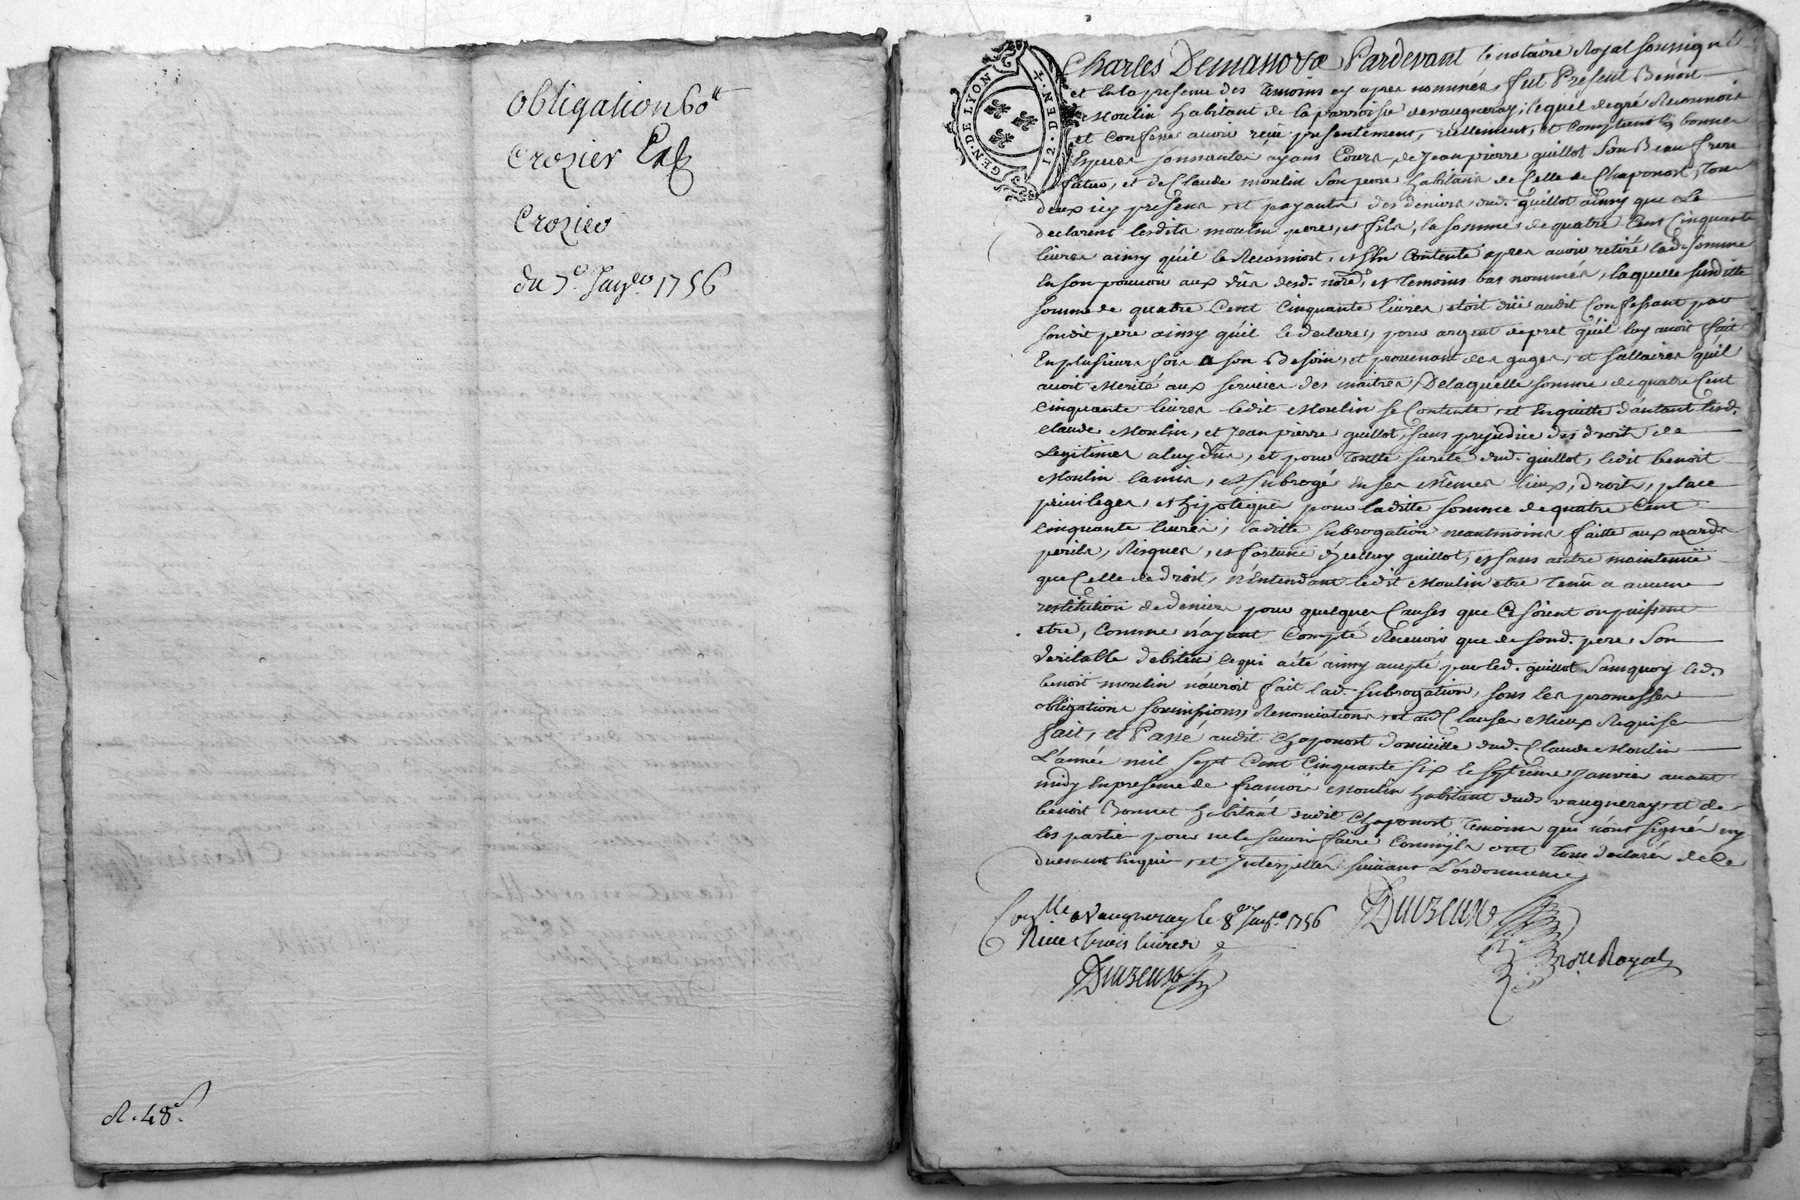 Obligation 60ᵗᵗ
Crozier
Crozier
du 7.e Janvᵉʳ 1756
R. 48ˢ.
GEN. DE LYON
12. DEN.
Pardevant le notaire Royal soussigné
et la presence des Temoins cy apres nommés, fut Present Benoit
Moulin habitant de la parroisse devaugneray, lequel de gré Reconnoit
et Confesse avoir reçu presentement, reellement, et Comptant en bonnes
Especes sonnantes ayans Cours de Jean pierre guillot son Beau frere
futur, et de Claude moulin son pere habitans de Celle de Chaponost, Tous
deux icy presens et payants des deniers dud. guillot ainsy que Le
declarent lesdits moulin pere, et fils, la somme de quatre Cent Cinquante
livres ainsy qu'il le Reconnoit, et s'en Contente apres avoir retiré lad. somme
en son pouvoir aux vûs desd. noᵗʳᵉ, et Temoins bas nommés, laquelle susditte
somme de quatre Cent Cinquante livres etoit düe audit Confessant par
sondit pere ainsy qu'il le declare, pour argent de pret qu'il luy avoit fait
En plusieurs fois a son Besoin, et provenant des gages, et sallaires qu'il
avoit Merité aux services des maitres, De laquelle somme de quatre Cent
Cinquante livres ledit Moulin se Contente, et En quitte d'autant lesd.
Claude Moulin, et Jean pierre guillot, sans prejudice des droits de
Legitimes a luy dûs, et pour Toutte sureté dud. guillot, ledit benoit
Moulin la mis, et subrogé En ses Mêmes lieux, droits, place
privileges, et hipoteques pour laditte somme de quatre Cent
Cinquante livres, laditte subrogation neantmoins faitte aux azards
perils, Risques, et fortune d'jcelluy guillot, et sans autre maintenüe
que Celle de droit, n'Entendant ledit Moulin etre Tenu a aucune
restitution de deniers pour quelques Causes que Ce soient ou puissent
etre, Comme n'ayant Compté Recevoir que de sond. pere son
veritable debiteur Ce qui a été ainsy accepté par led. guillot sans quoy led.
benoit moulin n'auroit fait lad. subrogation, sous les promesses
obligations soumissions, Renonciations, et aud. Clauses Mieux Requises
fait, et Passé audit Chaponost domicille dud. Claude Moulin
L'année mil sept Cent Cinquante six le septieme Janvier avant
midy En presence de francois Moulin habitant dud. vaugneray, et de
benoit Bonnet habitant dudit Chaponost Temoins qui n'ont signé ny
les parties pour ne le savoir faire Comm'ils ont Tous declarés de Ce
duement Enquis, et Interpellés suivant L'ordonnance
Conᵗˡˡᵉ a Vaugneray le 8ᵉ Janvᵉʳ 1756
Reçu trois livres
noᵗʳᵉ Royal